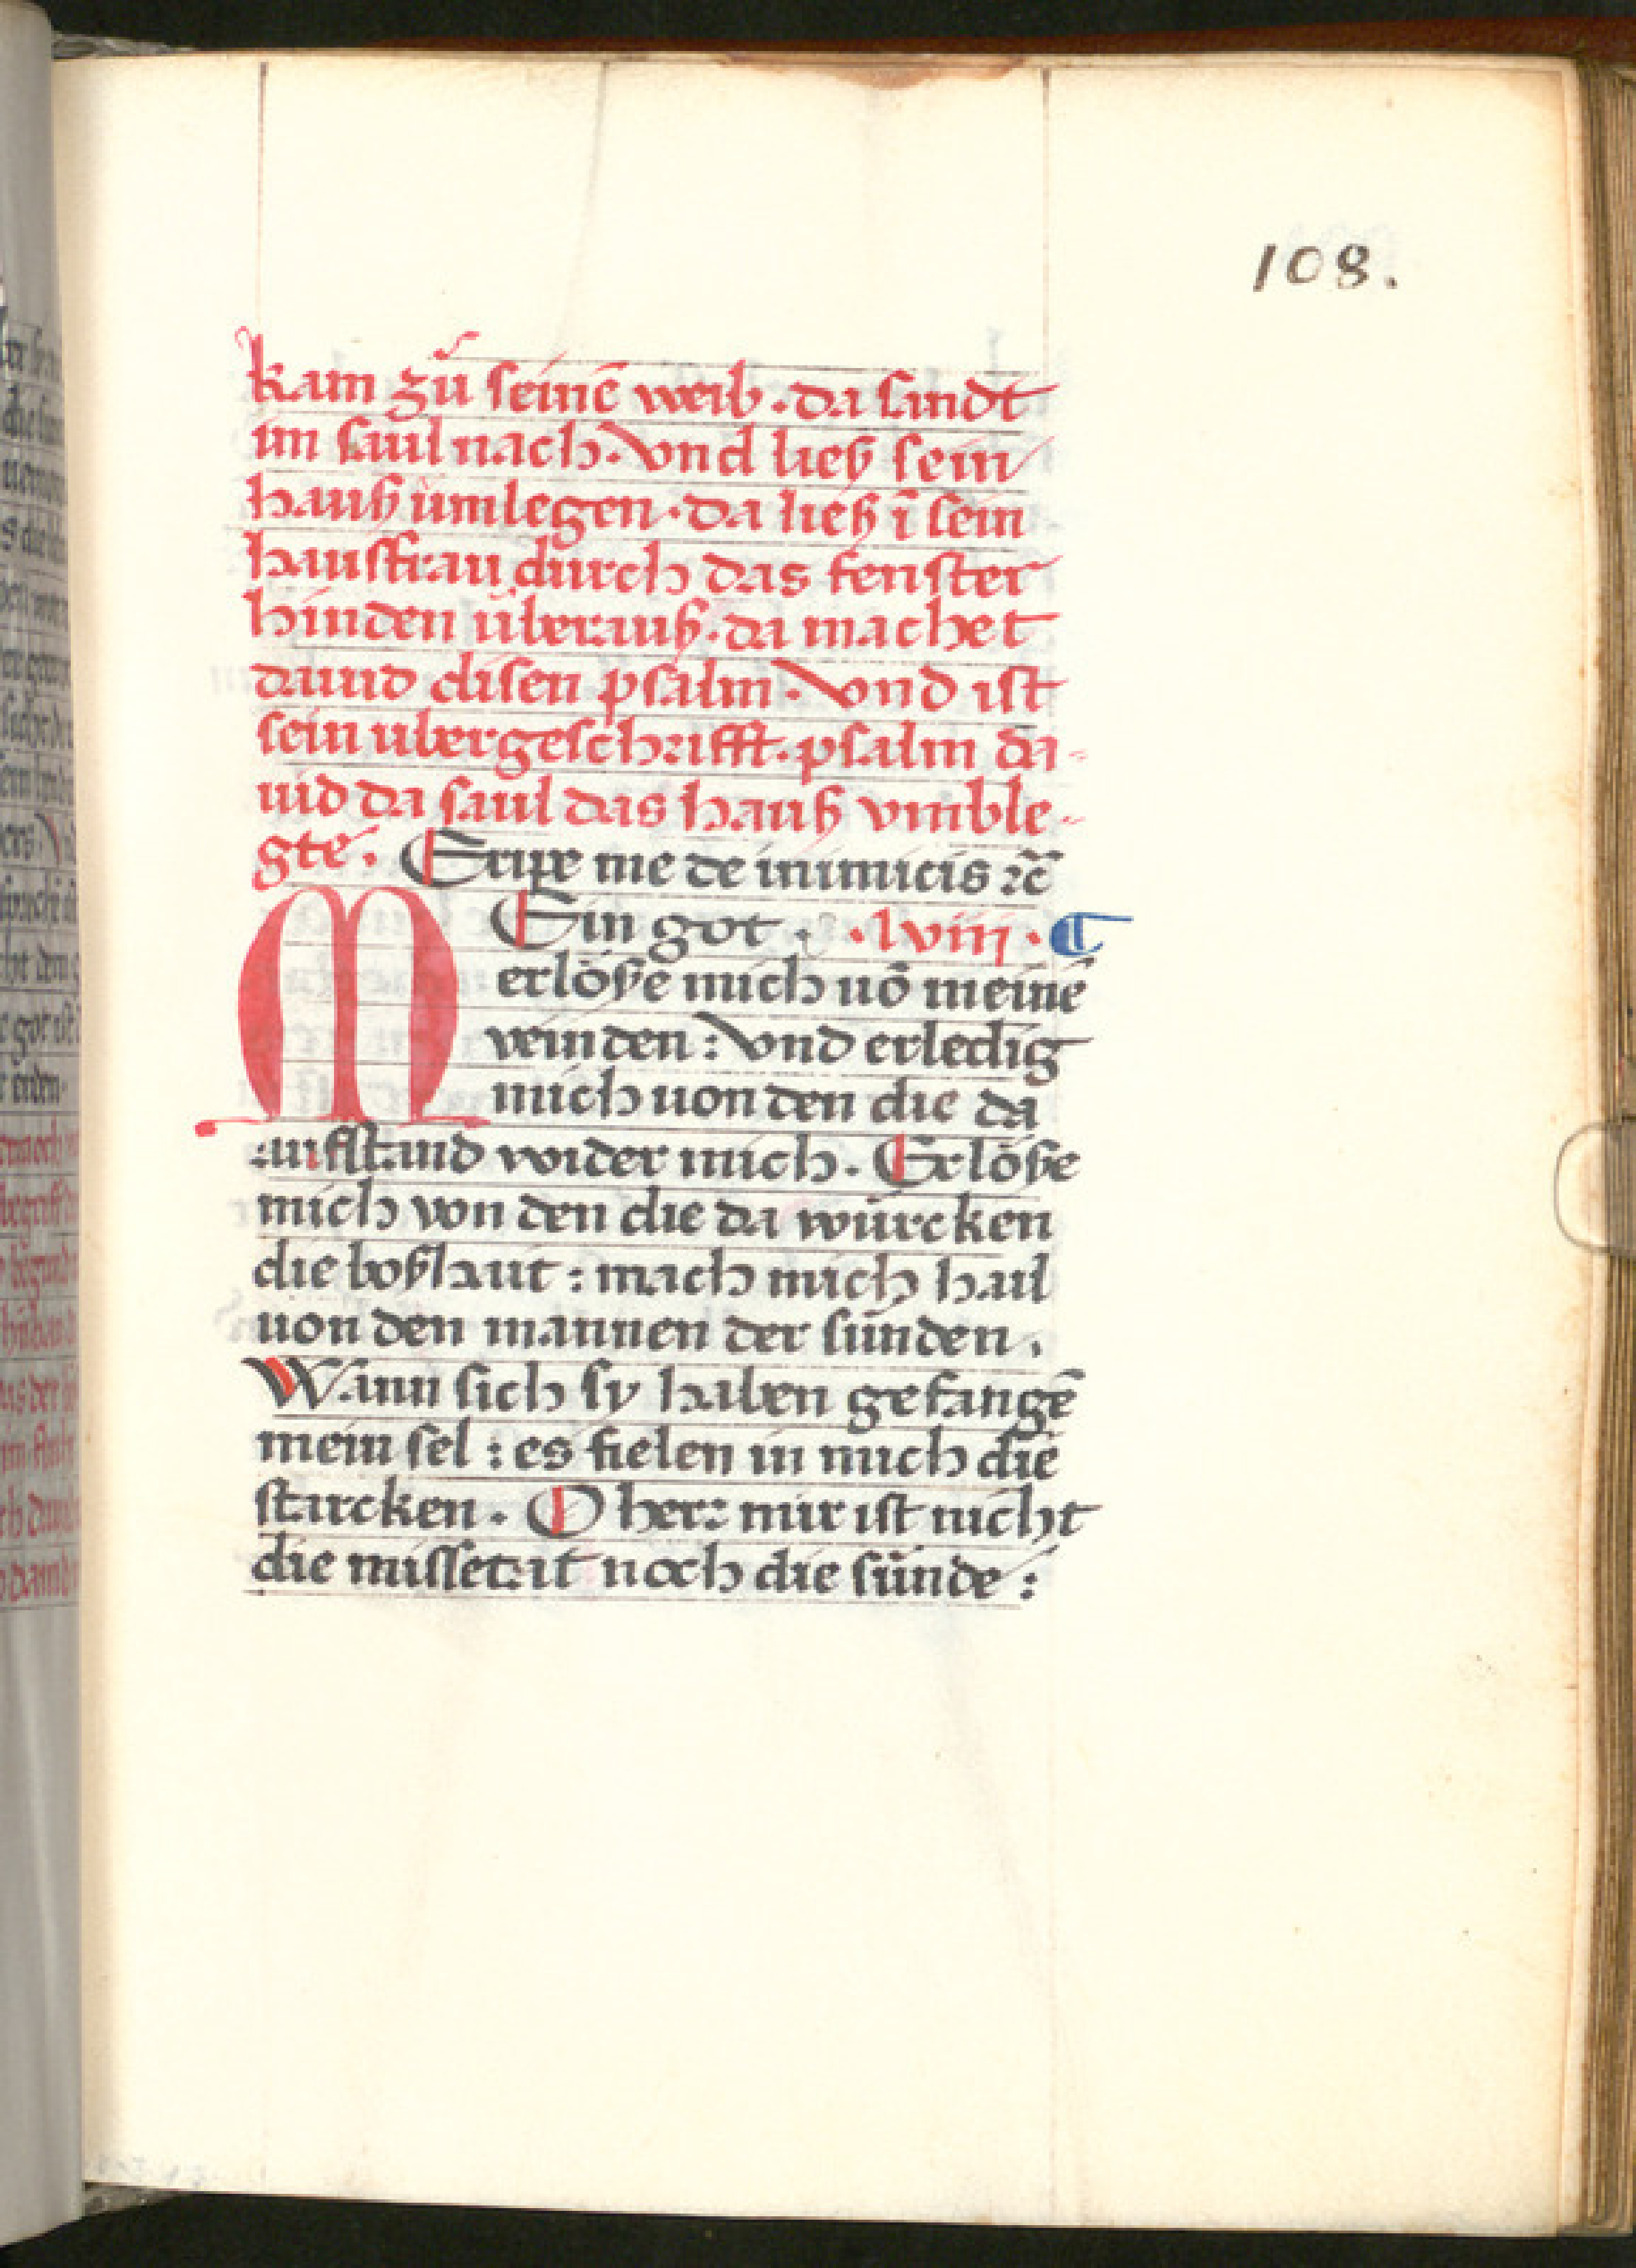 108.
kam zů seinē weib · da sandt
im saul nach · Vnd ließ sein
hauß ümlegen · da ließ ī sein
hausfrau durch das fenster
hinden überauß · da machet
dauid disen psalm · Vnd ist
sein ubergeschrifft · psalm da-
uid da saul das hauß vmble-
gte · Eripe me de inimicis ⁊c̄
MEin got · · lviij · ¶
erlöse mich uō meinē
veinden : Vnd erledig
mich uon den die da
aufstand wider mich . Erlöse
mich von den die da würcken
die boßhait : mach mich hail
uon den mannen der sünden .
Wann sich sy haben gefangē
mein sel : es fielen in mich die
starcken . O herr mir ist nicht
die missetat noch die sünde :